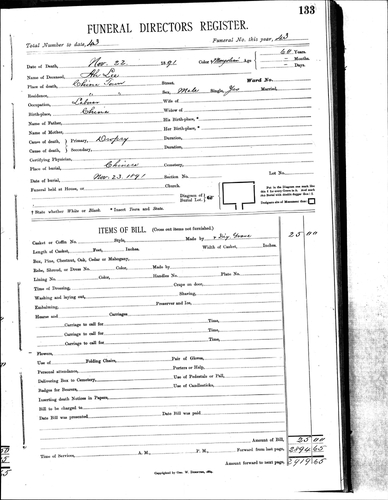 133
FUNERAL DIRECTORS REGISTER.
Total Number to date, 43 Funeral No. this year, 43
Date of Death, Nov. 22 1891 Color Mongolian Age 60 Years
Name of Deceased, Ah Lee – Months.
– Days.
Place of death, China Town Street. Ward No.
Residence, " " Sex, Male Single, Yes Married,
Occupation, Labor Wife of
Birthplace, China Widow of
Name of Father, His Birth-place, *
Name of Mother, Her Birth-place, *
Cause of death, Primary, Dropsy Duration,
Cause of death, Secondary, Duration,
Certifying Physician,
Place of burial, Chinese Cemetery,
Date of burial, Nov. 23. 1891 Section No. Lot No.
Funeral held at House, or Church.
Diagram of Burial Lot.
† State whether White or Black. * Insert Town and State.
ITEMS OF BILL. (Cross out items not furnished.)
Casket or Coffin No. Style, Made by & Dig Grave 25 00
Length of Casket, Feet, Inches. Width of Casket, Inches.
Box, Pine, Chestnut, Oak, Cedar or Mahogany,
Robe, Shroud, or Dress No. Color, Made by
Lining No. Color, Handles No. Plate No.
Time of Dressing, Crape on door,
Washing and laying out, Shaving,
Embalming, Preserver and Ice,
Hearse and Carriages,
Carriage to call for Time,
Carriage to call for Time,
Carriage to call for Time,
Flowers,
Use of Folding Chairs, Pair of Gloves,
Personal attendance, Porters or Help,
Delivering Box to Cemetery, Use of Pedestals or Pall,
Badges for Bearers, Use of Candlesticks,
Inserting death Notices in Papers,
Bill to be charged to
Date Bill was presented Date Bill was paid
Amount of Bill, 25 00
Time of Services, A. M., P. M., Forward from last page, 2894 65
Amount forward to next page, 2919 65